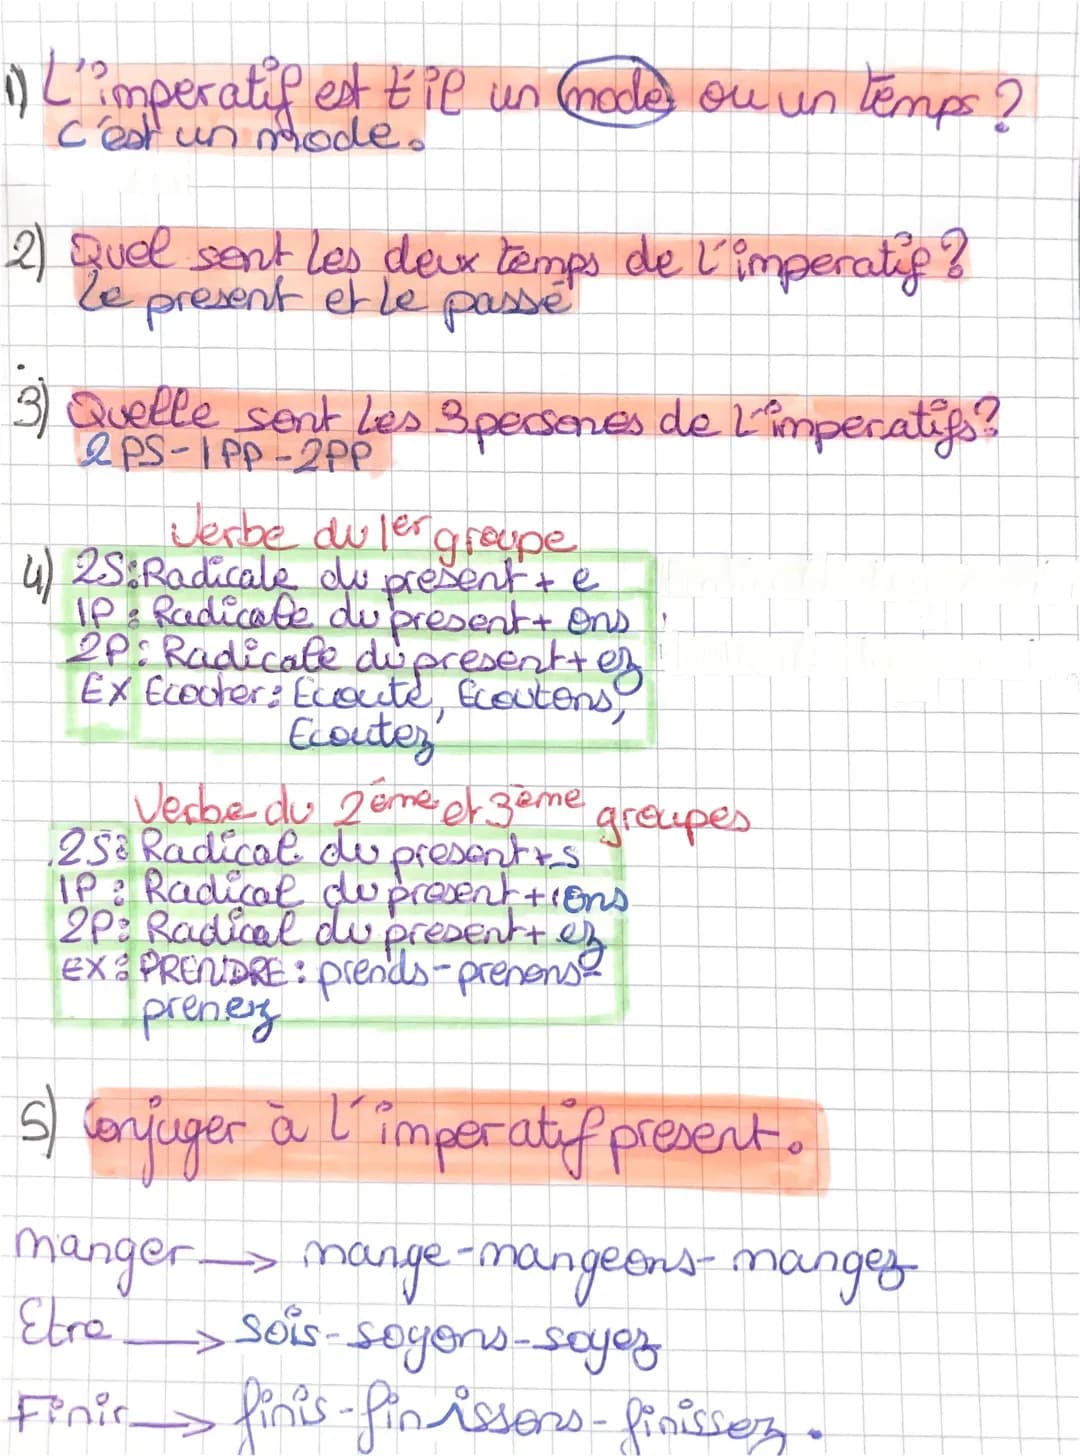 1) L'imperatif est t'il un mode ou un temps ?
c'est un mode.
2) Quel sont les deux temps de l'imperatif ?
Le present et le passé
3) Quelle sont les 3 persones de l'imperatifs ?
2PS-1PP-2PP
Verbe du 1er groupe
4) 2S: Radicale du present + e
1P : Radicale du present + ons
2P : Radicale du present + ez
EX Ecouter : Ecoute, Ecoutons,
Ecoutez
Verbe du 2ème et 3ème groupes
2S : Radical du present + s
1P : Radical du present + ons
2P : Radical du present + ez
EX : PRENDRE : prends-prenons-
prenez
5) Conjuger à l'imperatif present.
manger → mange-mangeons-mangez
Etre → sois-soyons-soyez
Finir → finis-finissons-finissez.